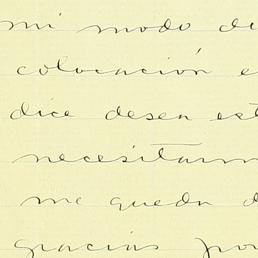 mi modo de
colocación e
dice desea est
necesitamos
me queda d
gracias por